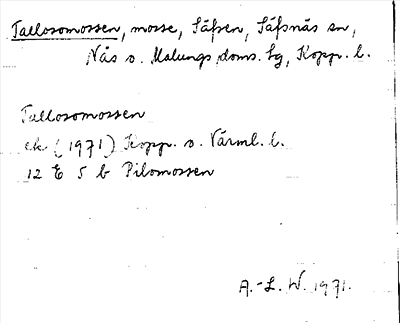 Tallosomossen, mosse, Säfsen, Säfsnäs sn,
Nås o. Malungs doms. sg, Kopp. l.
Tallosomossen
ek (1971) Kopp. o. Värml. l.
12 E 5 b Pilomossen
A.-L. W. 1971.